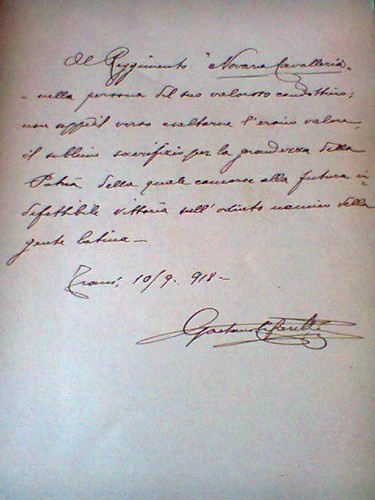 Al Reggimento "Novara Cavalleria"
- nella persona del suo valoroso condottiero;
non seppe il verso esaltarne l'eroico valore,
il sublime sacrifizio per la grandezza della
Patria, della quale concorse alla futura in=
defettibile vittoria sull'odiato nemico della
gente latina -
Trani, 10/9. 918 -
Gaetano